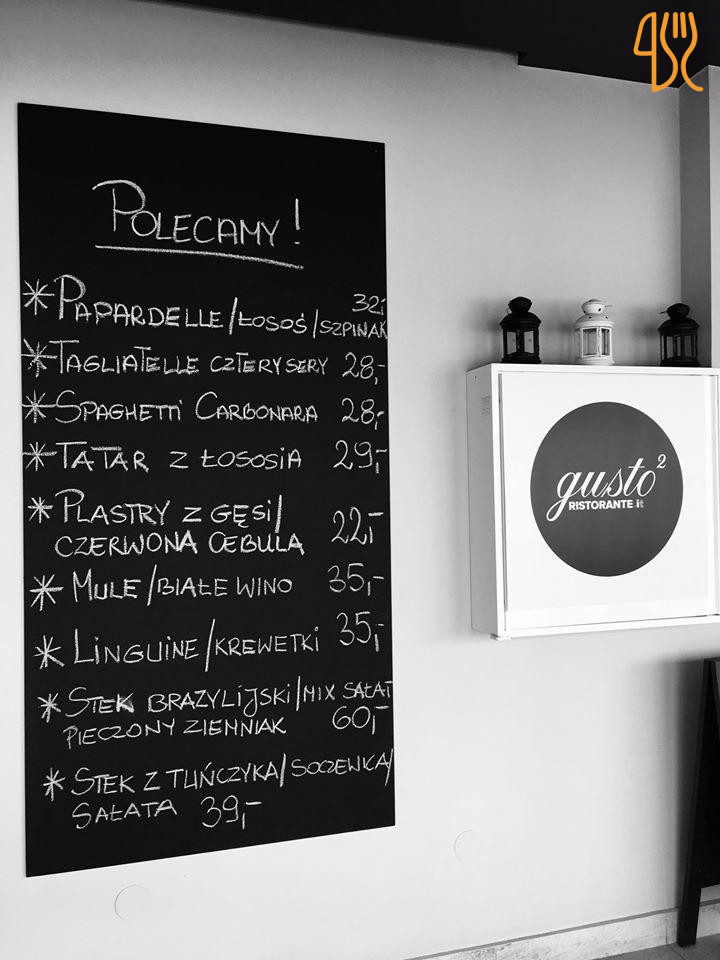 POLECAMY!
32,-
* PAPARDELLE/ŁOSOŚ/SZPINAK
* TAGLIATELLE CZTERY SERY 28,-
* SPAGHETTI CARBONARA 28,-
* TATAR Z ŁOSOSIA 29,-
* PLASTRY Z GĘSI/
CZERWONA CEBULA 22,-
* MULE/BIAŁE WINO 35,-
* LINGUINE/KREWETKI 35,-
* STEK BRAZYLIJSKI/MIX SAŁAT
PIECZONY ZIEMNIAK 60,-
* STEK Z TUŃCZYKA/SOCZEWICA/
SAŁATA 39,-
gusto²
RISTORANTE it